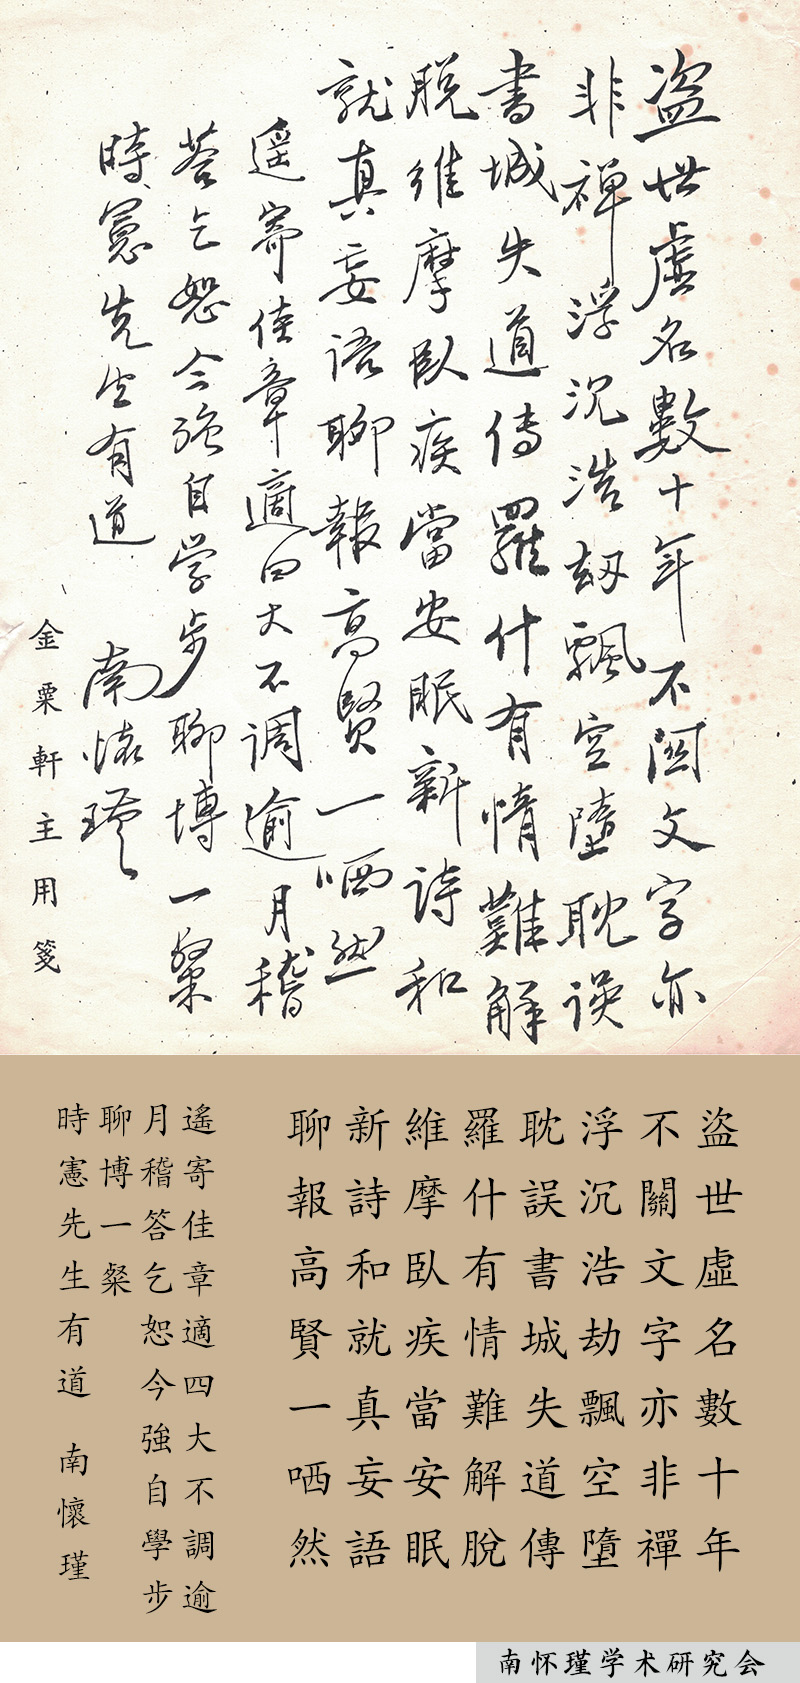 盜世虛名數十年不関文字亦
非禪浮沉浩劫飄空墮耽誤
書城失道傳羅什有情難解
脫維摩臥疾當安眠新詩和
就真妄語聊報高賢一哂然
遥寄佳章適四大不調逾月稽
荅乞恕今強自学步聊博一粲
時憲先生有道 南懷瑾
金粟軒主用箋
盜世虛名數十年
不關文字亦非禪
浮沉浩劫飄空墮
耽誤書城失道傳
羅什有情難解脫
維摩臥疾當安眠
新詩和就真妄語
聊報高賢一哂然
遙寄佳章適四大不調逾
月稽答乞恕今強自學步
聊博一粲
時憲先生有道 南懷瑾
南怀瑾学术研究会